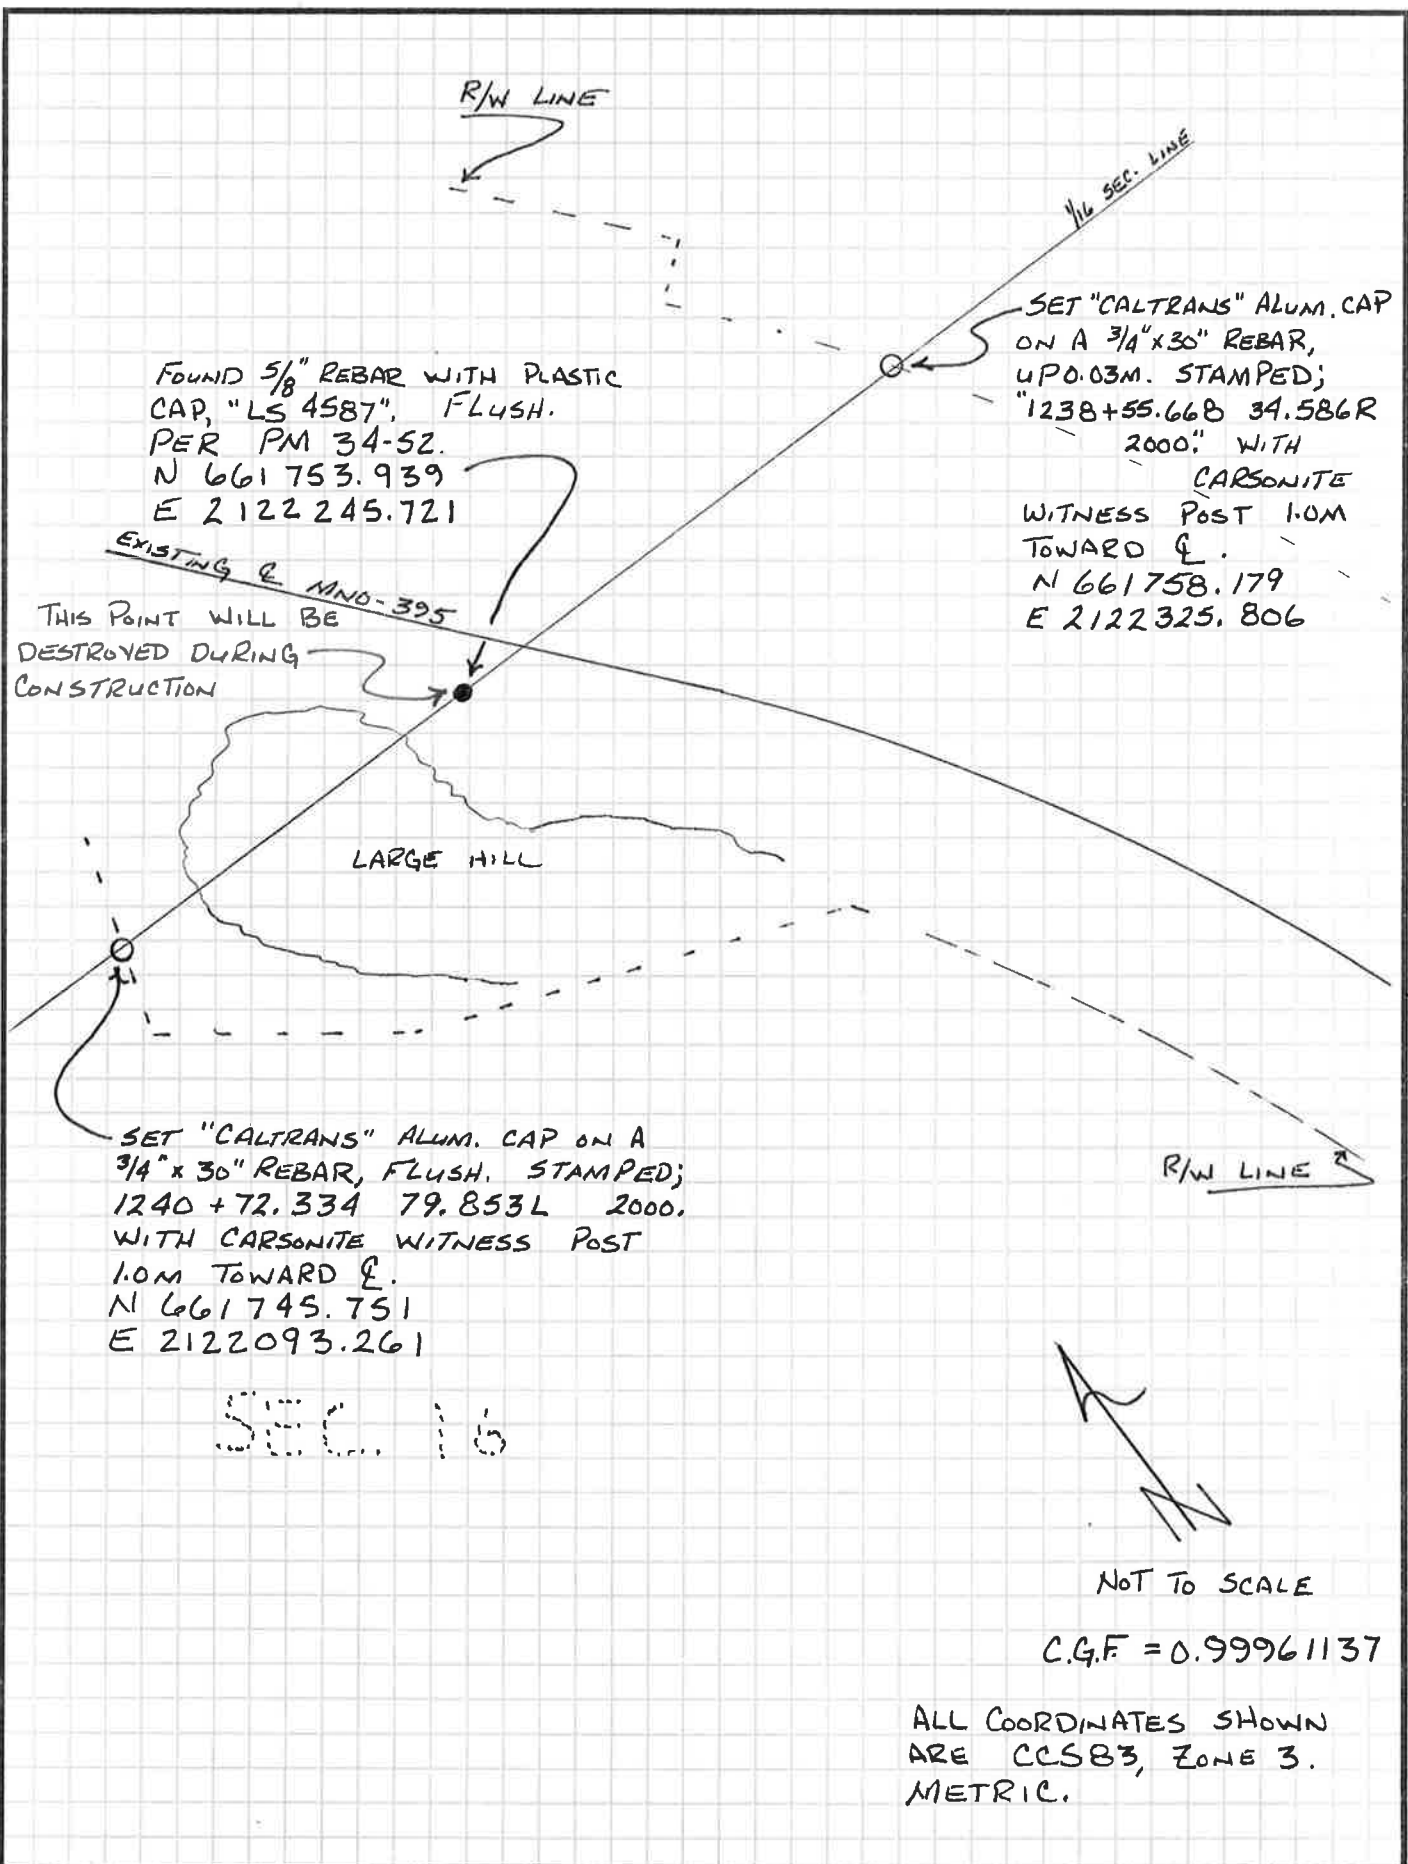 R/W LINE
1/16 SEC. LINE
SET "CALTRANS" ALUM. CAP
ON A 3/4" x 30" REBAR,
UP 0.03M. STAMPED;
"1238+55.668 34.586R
2000." WITH
CARSONITE
WITNESS POST 1.0M
TOWARD ℄.
N 661758.179
E 2122325.806
FOUND 5/8" REBAR WITH PLASTIC
CAP, "LS 4587", FLUSH.
PER PM 34-52.
N 661 753.939
E 2122245.721
EXISTING ℄ MNO-395
THIS POINT WILL BE
DESTROYED DURING
CONSTRUCTION
LARGE HILL
SET "CALTRANS" ALUM. CAP ON A
3/4" x 30" REBAR, FLUSH. STAMPED;
1240+72.334 79.853L 2000.
WITH CARSONITE WITNESS POST
1.0M TOWARD ℄.
N 661745.751
E 2122093.261
R/W LINE
SEC. 16
N
NOT TO SCALE
C.G.F. = 0.99961137
ALL COORDINATES SHOWN
ARE CCS83, ZONE 3.
METRIC.